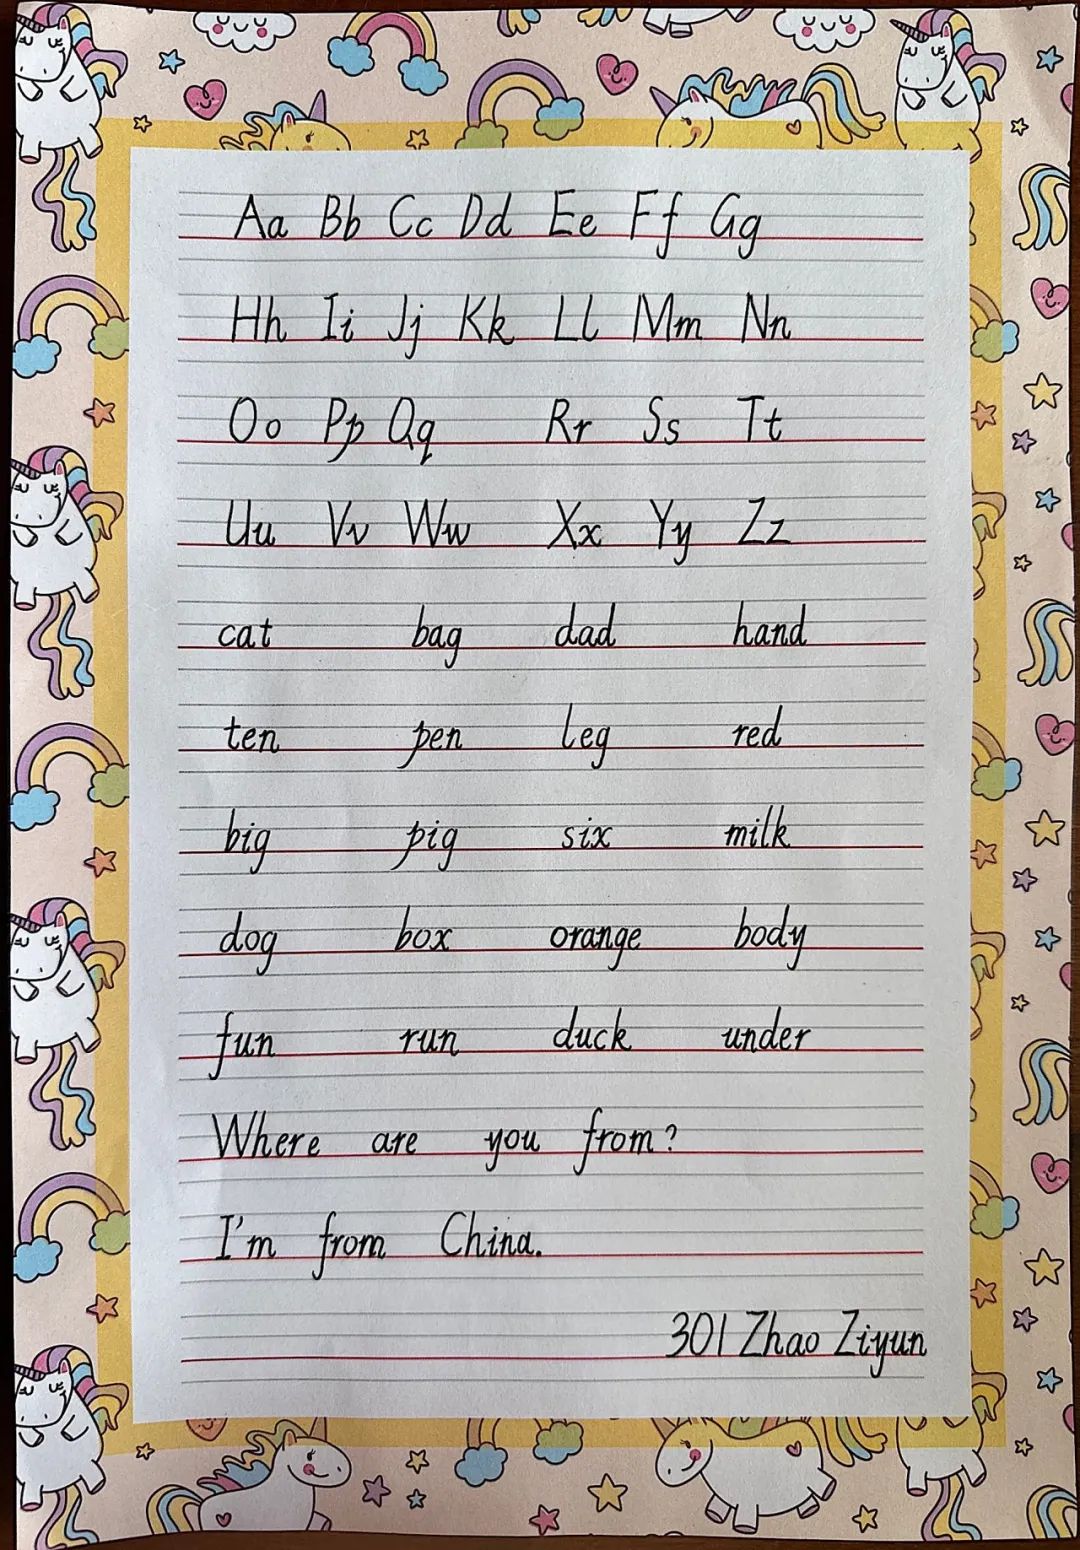 Aa Bb Cc Dd Ee Ff Gg
Hh Ii Jj Kk Ll Mm Nn
Oo Pp Qq Rr Ss Tt
Uu Vv Ww Xx Yy Zz
cat bag dad hand
ten pen leg red
big pig six milk
dog box orange body
fun run duck under
Where are you from?
I'm from China.
301 Zhao Ziyun